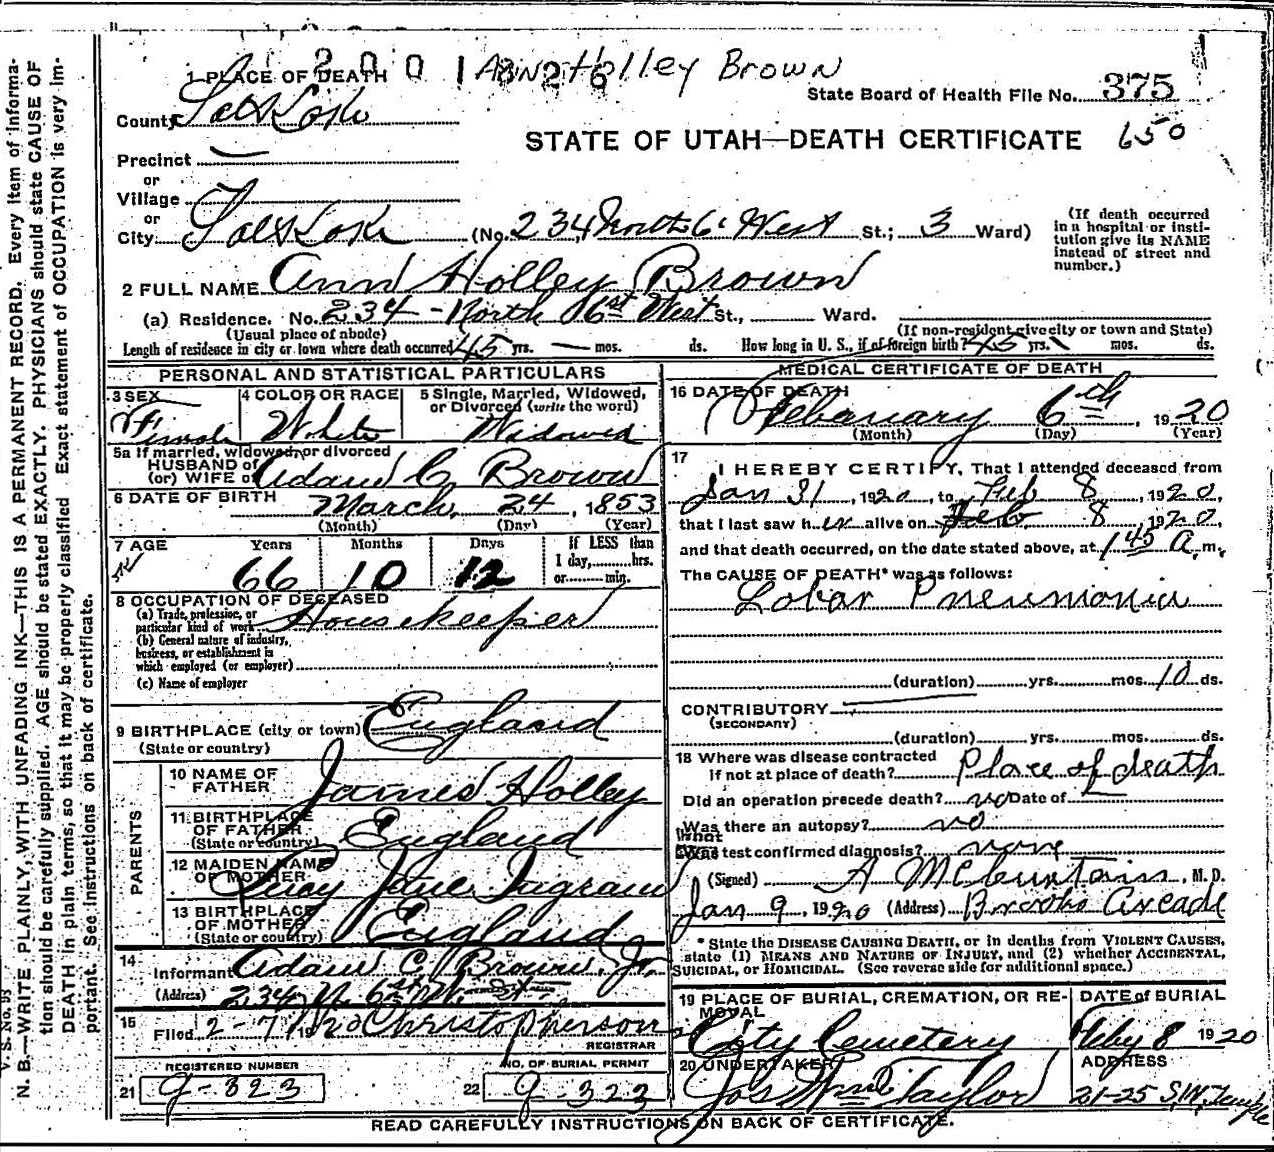 2001326
Ann Holley Brown
1 PLACE OF DEATH
State Board of Health File No. 375
County Salt Lake
STATE OF UTAH—DEATH CERTIFICATE 650
Precinct —
or
Village
or
City Salt Lake (No. 234 North 6 West St.; 3 Ward)
(If death occurred in a hospital or institution give its NAME instead of street and number.)
2 FULL NAME Ann Holley Brown
(a) Residence. No. 234 - North 6st West St., Ward.
(Usual place of abode) (If non-resident give city or town and State)
Length of residence in city or town where death occurred 45 yrs. — mos. ds. How long in U. S., if of foreign birth? 45 yrs. mos. ds.
PERSONAL AND STATISTICAL PARTICULARS
3 SEX Female
4 COLOR OR RACE White
5 Single, Married, Widowed, or Divorced (write the word) Widowed
5a If married, widowed, or divorced
HUSBAND of
(or) WIFE of Adam C Brown
6 DATE OF BIRTH March 24, 1853
(Month) (Day) (Year)
7 AGE Years Months Days If LESS than
66 10 12 1 day, hrs.
or min.
8 OCCUPATION OF DECEASED
(a) Trade, profession, or
particular kind of work Housekeeper
(b) General nature of industry,
business, or establishment in
which employed (or employer)
(c) Name of employer
9 BIRTHPLACE (city or town) England
(State or country)
PARENTS
10 NAME OF
FATHER James Holley
11 BIRTHPLACE
OF FATHER England
(State or country)
12 MAIDEN NAME
OF MOTHER Lucy Jane Ingram
13 BIRTHPLACE
OF MOTHER England
(State or country)
14
Informant Adam C. Brown, Jr.
(Address) 234 N. 6st W. St
15
Filed 2-7 1920 Christopherson
REGISTRAR
REGISTERED NUMBER
21 g-323
NO. OF BURIAL PERMIT
22 g-323
MEDICAL CERTIFICATE OF DEATH
16 DATE OF DEATH
Febauary 6th, 1920
(Month) (Day) (Year)
17
I HEREBY CERTIFY, That I attended deceased from
Jan 31, 1920, to Feb 8, 1920,
that I last saw her alive on Feb 8, 1920,
and that death occurred, on the date stated above, at 1 45 a m.
The CAUSE OF DEATH* was as follows:
Lobar Pneumonia
(duration) yrs. mos. 10 ds.
CONTRIBUTORY —
(SECONDARY)
(duration) yrs. mos. ds.
18 Where was disease contracted
if not at place of death? Place of death
Did an operation precede death? no Date of
Was there an autopsy? no
What test confirmed diagnosis? none
(Signed) A McCuntain, M. D.
Jan 9, 1920 (Address) Brooks Arcade
* State the DISEASE CAUSING DEATH, or in deaths from VIOLENT CAUSES,
state (1) MEANS AND NATURE OF INJURY, and (2) whether ACCIDENTAL,
SUICIDAL, or HOMICIDAL. (See reverse side for additional space.)
19 PLACE OF BURIAL, CREMATION, OR REMOVAL
City Cemetery
DATE of BURIAL
Feby 8 1920
20 UNDERTAKER
Jos Wm Taylor
ADDRESS
21-25 S.W. Temple
READ CAREFULLY INSTRUCTIONS ON BACK OF CERTIFICATE.
V. S. No. 95
N. B.—WRITE PLAINLY, WITH UNFADING INK—THIS IS A PERMANENT RECORD. Every item of information
should be carefully supplied. AGE should be stated EXACTLY. PHYSICIANS should state CAUSE OF
DEATH in plain terms, so that it may be properly classified. Exact statement of OCCUPATION is very important.
See instructions on back of certificate.